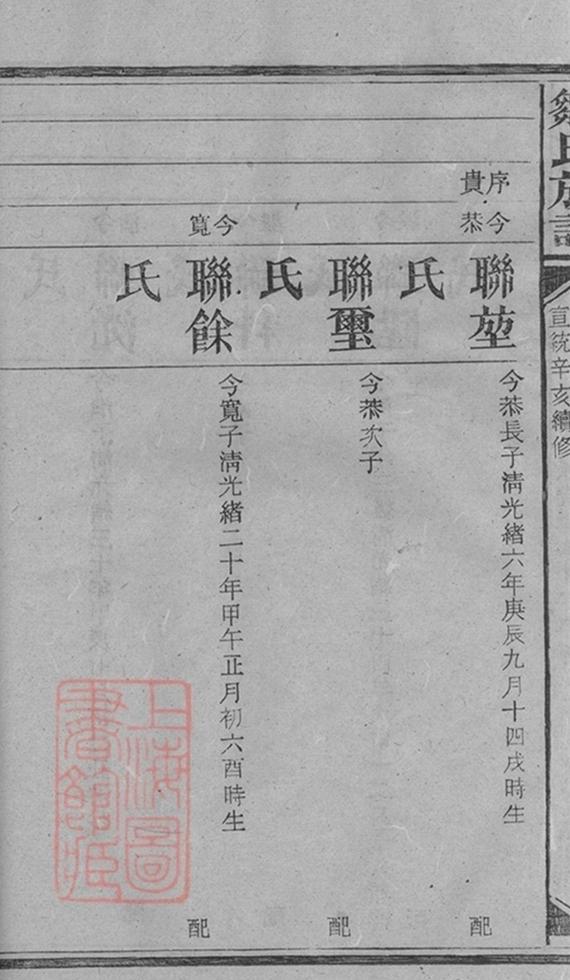 鄒氏族譜
宣統辛亥續修
序貴
今恭
聯堃
今恭長子清光緒六年庚辰九月十四戌時生
配
氏
聯璽
今恭次子
配
氏
今寬
聯餘
今寬子清光緒二十年甲午正月初六酉時生
配
氏
上海圖書館藏